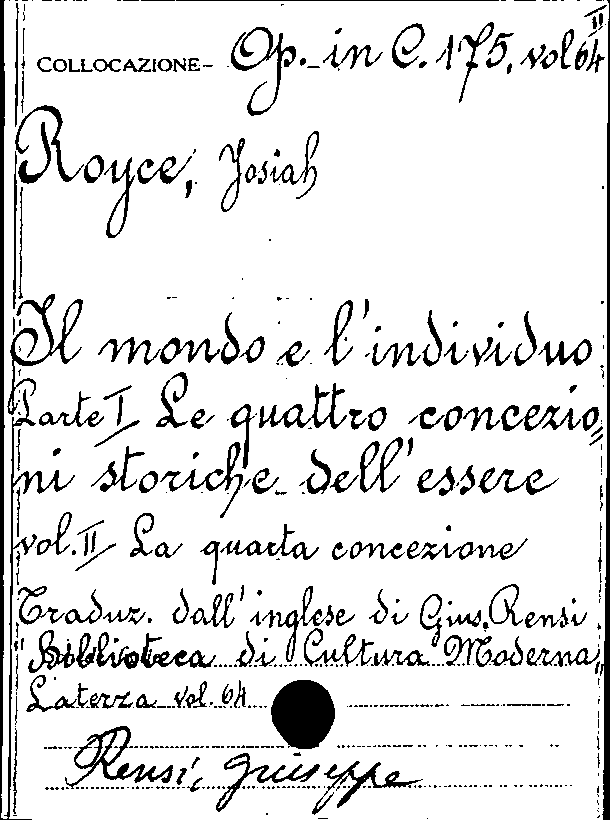 COLLOCAZIONE- Op. in C. 175, vol 64 II
Royce, Josiah
Il mondo e l'individuo
Parte I Le quattro concezio=
ni storiche dell'essere
vol. II La quarta concezione
Traduz. dall'inglese di Gius. Rensi
"Biblioteca di Cultura Moderna"
Laterza vol. 64
Rensi, Giuseppe